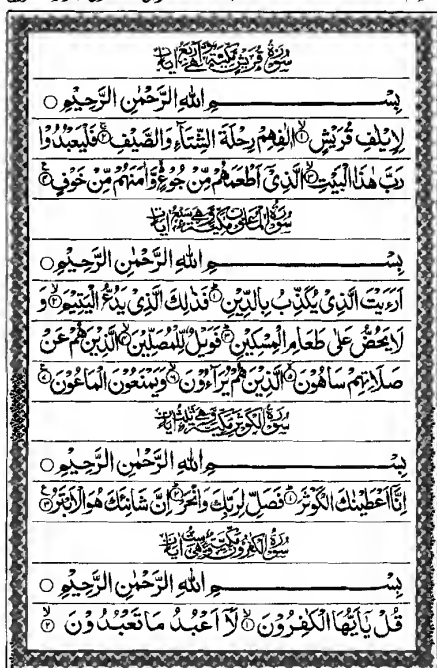 سُوْرَةُ قُرَيْشٍ مَّكِّيَّةٌ وَّهِيَ اَرْبَعُ اٰيَاتٍ
بِسْمِ اللهِ الرَّحْمٰنِ الرَّحِيْمِ ○
لِاِيْلٰفِ قُرَيْشٍ ۙ۱ اٖلٰفِهِمْ رِحْلَةَ الشِّتَآءِ وَالصَّيْفِ ۚ۲ فَلْيَعْبُدُوْا
رَبَّ هٰذَا الْبَيْتِ ۙ۳ الَّذِيْٓ اَطْعَمَهُمْ مِّنْ جُوْعٍ ۙ وَّاٰمَنَهُمْ مِّنْ خَوْفٍ ۴
سُوْرَةُ الْمَاعُوْنِ مَكِّيَّةٌ وَّهِيَ سَبْعُ اٰيَاتٍ
بِسْمِ اللهِ الرَّحْمٰنِ الرَّحِيْمِ ○
اَرَءَيْتَ الَّذِيْ يُكَذِّبُ بِالدِّيْنِ ۱ فَذٰلِكَ الَّذِيْ يَدُعُّ الْيَتِيْمَ ۙ۲ وَ
لَا يَحُضُّ عَلٰى طَعَامِ الْمِسْكِيْنِ ۳ فَوَيْلٌ لِّلْمُصَلِّيْنَ ۙ۴ الَّذِيْنَ هُمْ عَنْ
صَلَاتِهِمْ سَاهُوْنَ ۙ۵ الَّذِيْنَ هُمْ يُرَآءُوْنَ ۙ۶ وَيَمْنَعُوْنَ الْمَاعُوْنَ ۷
سُوْرَةُ الْكَوْثَرِ مَكِّيَّةٌ وَّهِيَ ثَلٰثُ اٰيَاتٍ
بِسْمِ اللهِ الرَّحْمٰنِ الرَّحِيْمِ ○
اِنَّآ اَعْطَيْنٰكَ الْكَوْثَرَ ۱ فَصَلِّ لِرَبِّكَ وَانْحَرْ ۲ اِنَّ شَانِئَكَ هُوَ الْاَبْتَرُ ۳
سُوْرَةُ الْكٰفِرُوْنَ مَكِّيَّةٌ وَّهِيَ سِتُّ اٰيَاتٍ
بِسْمِ اللهِ الرَّحْمٰنِ الرَّحِيْمِ ○
قُلْ يٰٓاَيُّهَا الْكٰفِرُوْنَ ۙ۱ لَآ اَعْبُدُ مَا تَعْبُدُوْنَ ۙ۲